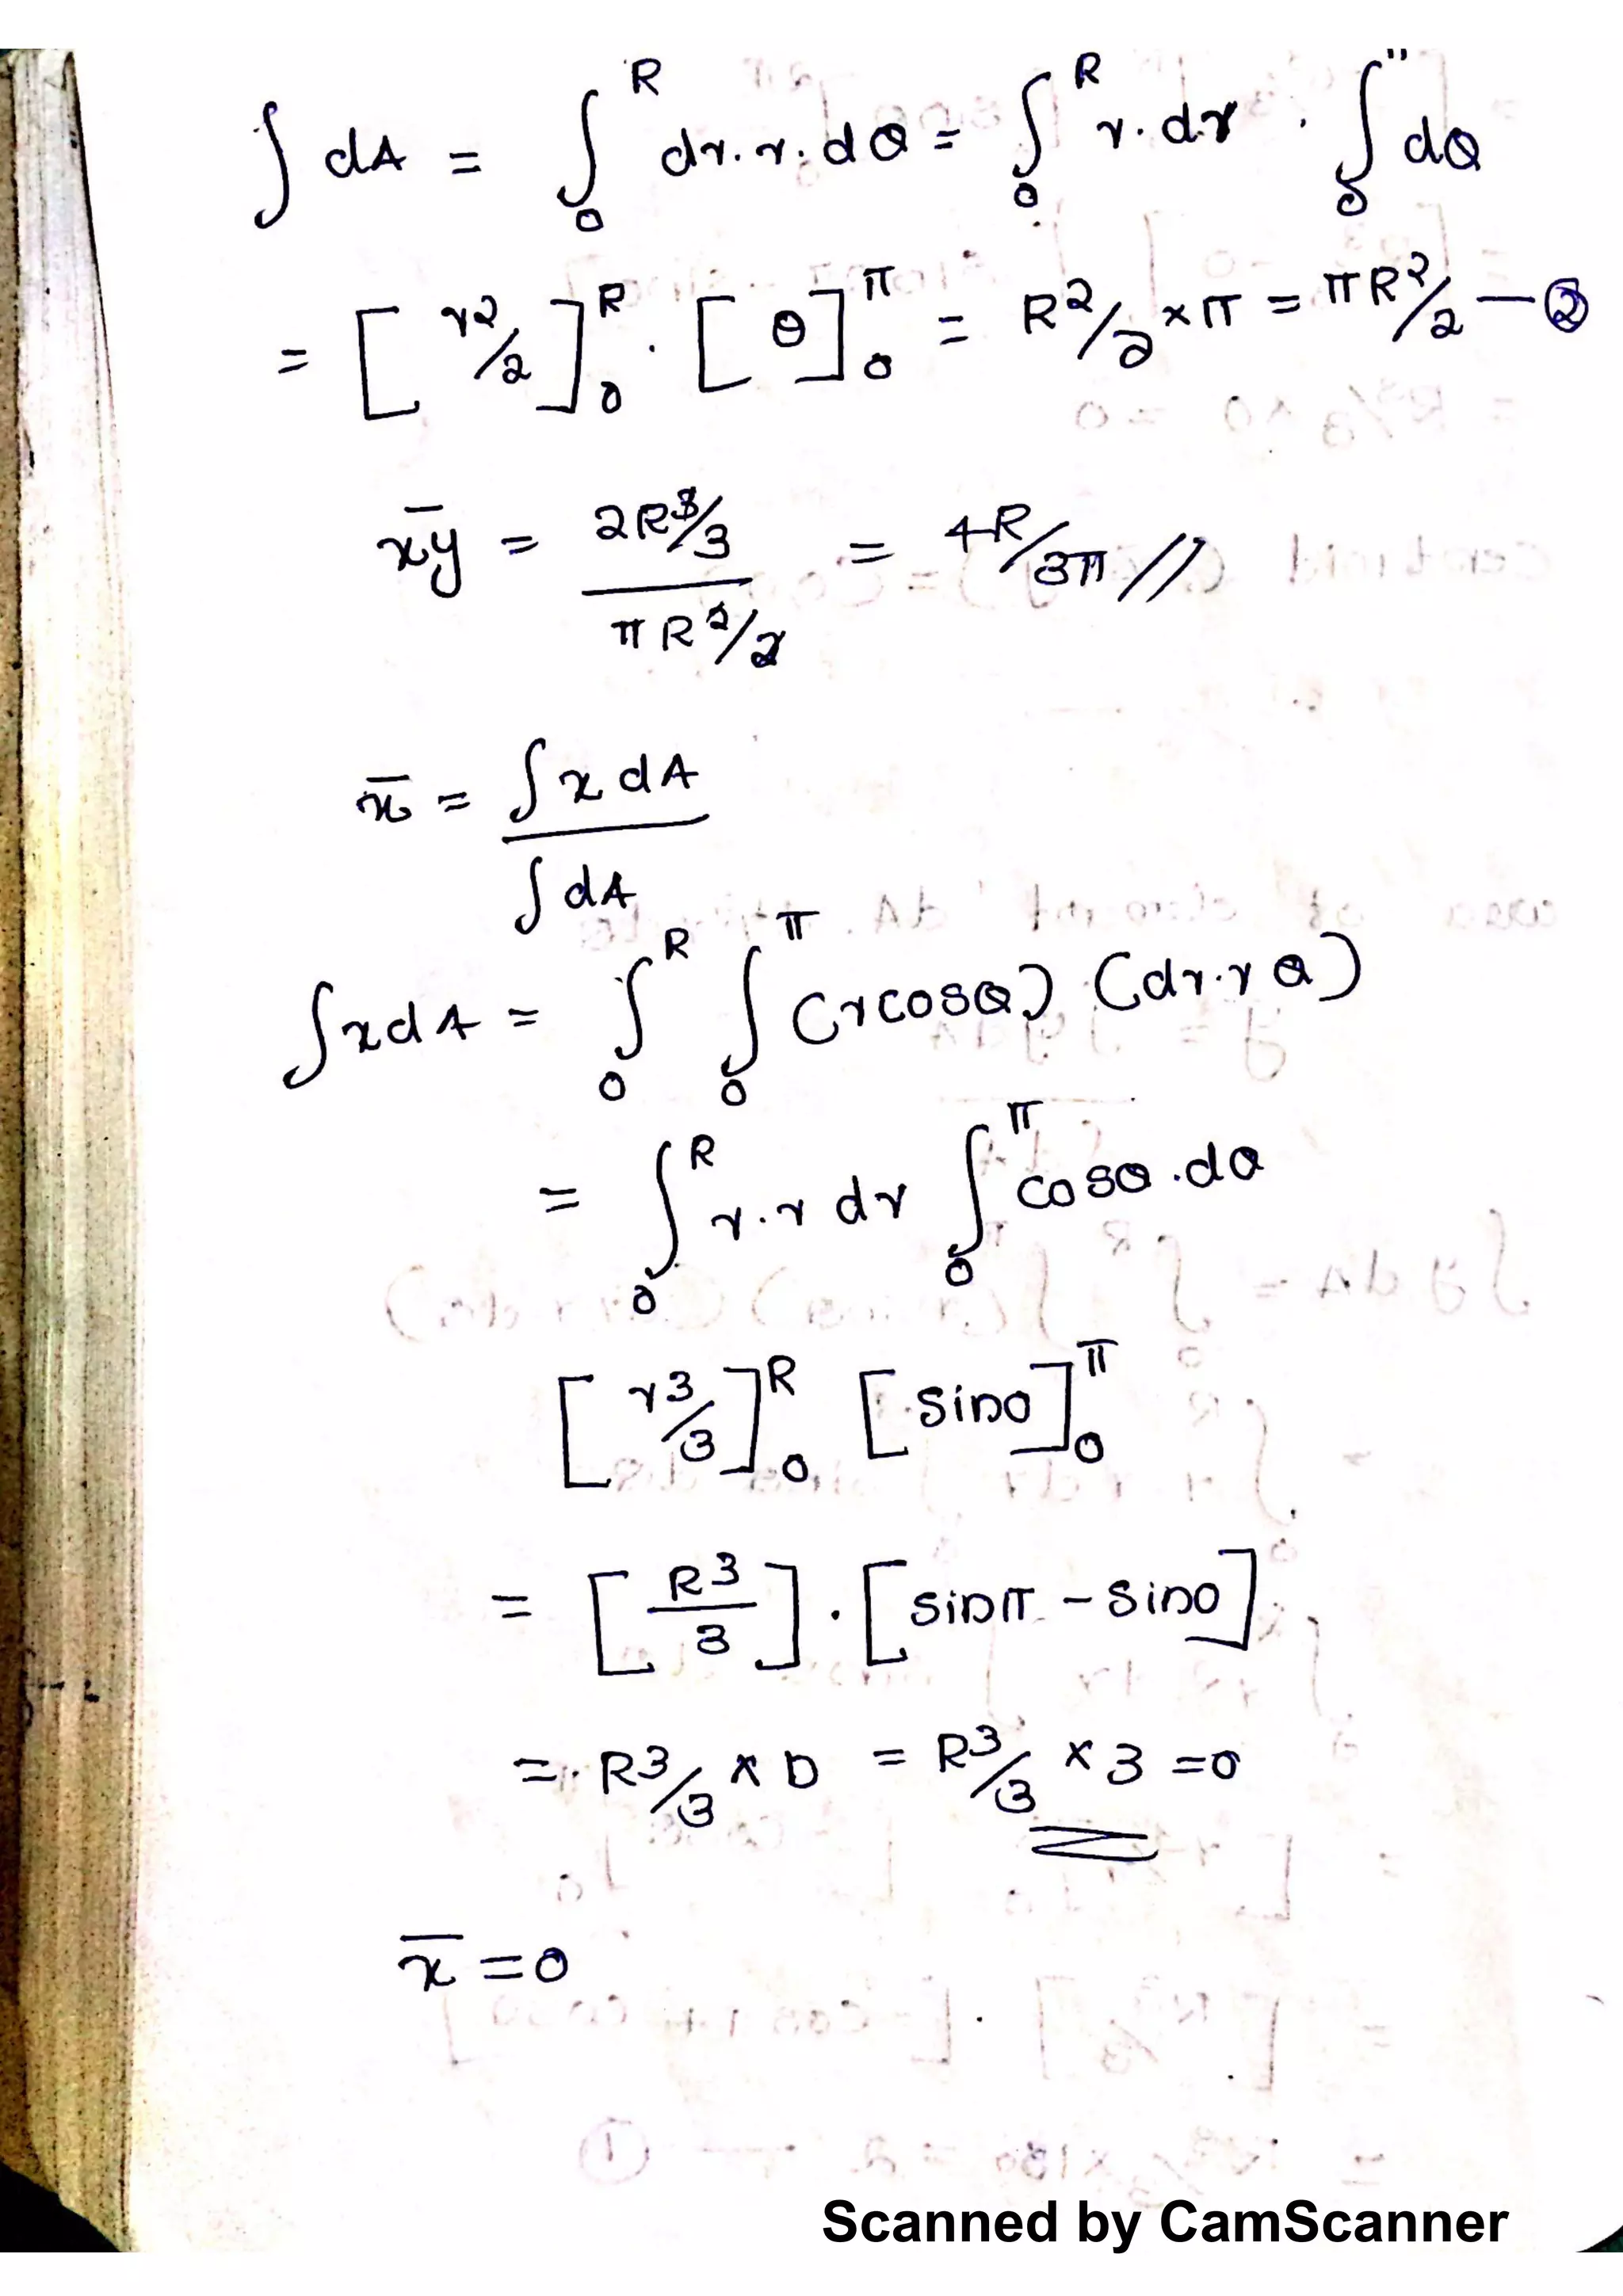 ∫ dA = ∫₀ᴿ dr. r. dθ = ∫₀ᴿ r. dr . ∫₀^π dθ
= [ r2/2 ]₀ᴿ . [ θ ]₀^π = R2/2 × π = πR2/2 — ②
x̄ȳ = (2R3/3) / (πR2/2) = 4R/3π //
x̄ = ∫ x dA / ∫ dA
∫ x dA = ∫₀ᴿ ∫₀^π (r cosθ) (dr. r θ)
= ∫₀ᴿ r. r dr ∫₀^π cosθ . dθ
[ r3/3 ]₀ᴿ [ sinθ ]₀^π
= [ R3/3 ] . [ sinπ - sin0 ]
= R3/3 × 0 = R3/3 × 3 = 0
x̄ = 0
Scanned by CamScanner